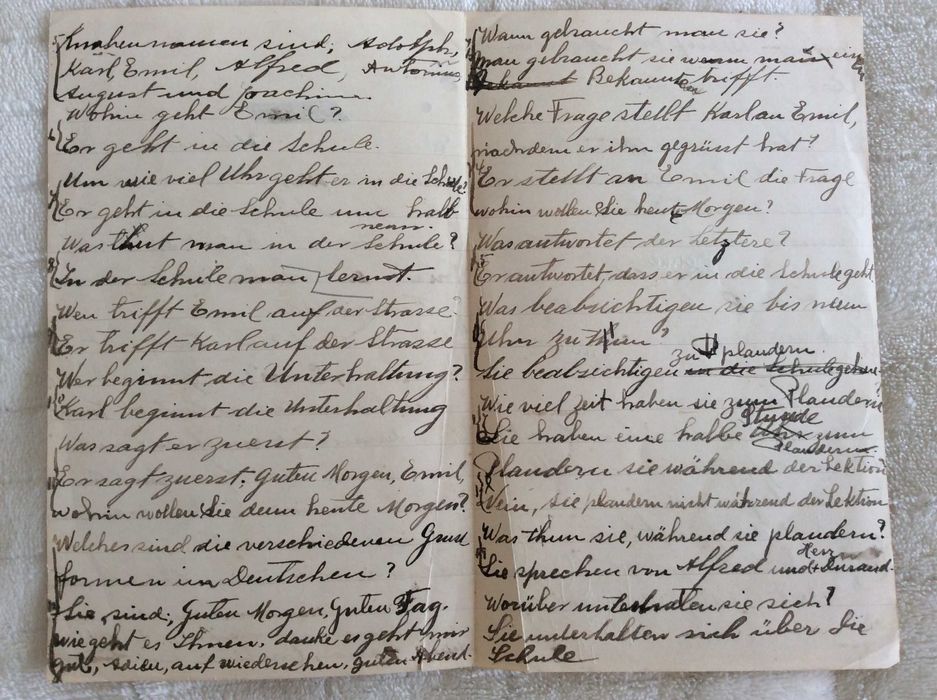 Knabennamen sind; Adolph,
Karl Emil, Alfred, Antonius,
August und Joachim.
Wohin geht Emil?
Er geht in die Schule.
Um wie viel Uhr geht er in die Schule?
Er geht in die Schule um halb
neun.
Was thut man in der Schule?
In der Schule man lernt.
Wen trifft Emil auf der Strasse?
Er trifft Karl auf der Strasse
Wer beginnt die Unterhaltung?
Karl beginnt die Unterhaltung
Was sagt er zuerst?
Er sagt zuerst, Guten Morgen, Emil,
wohin wollen Sie denn heute Morgen?
Welches sind die verschiedenen Gruss
formen im Deutschen?
Sie sind; Guten Morgen, Guten Tag.
wie geht es Ihnen, danke, es geht mir
gut, Adieu, auf wiedersehen, Guten Abend.
Wann gebraucht man sie?
man gebraucht sie wenn man einen
Bekannten trifft
Welche Frage stellt Karl an Emil,
nachdem er ihn gegrüsst hat?
Er stellt an Emil die Frage
wohin wollen Sie heute Morgen?
Was antwortet der Letztere?
Er antwortet, dass er in die Schule geht.
Was beabsichtigen sie bis neun
Uhr zu thun?
zu plaudern.
Sie beabsichtigen in die Schule gehen
Wie viel Zeit haben sie zum Plaudern?
Stunde
Sie haben eine halbe Uhr zum
Plaudern.
Plaudern sie während der Lektion
Nein, sie plaudern nicht während der Lektion
Was thun sie, während sie plaudern?
Herr
Sie sprechen von Alfred und Durand.
Worüber unterhalten sie sich?
Sie unterhalten sich über die
Schule